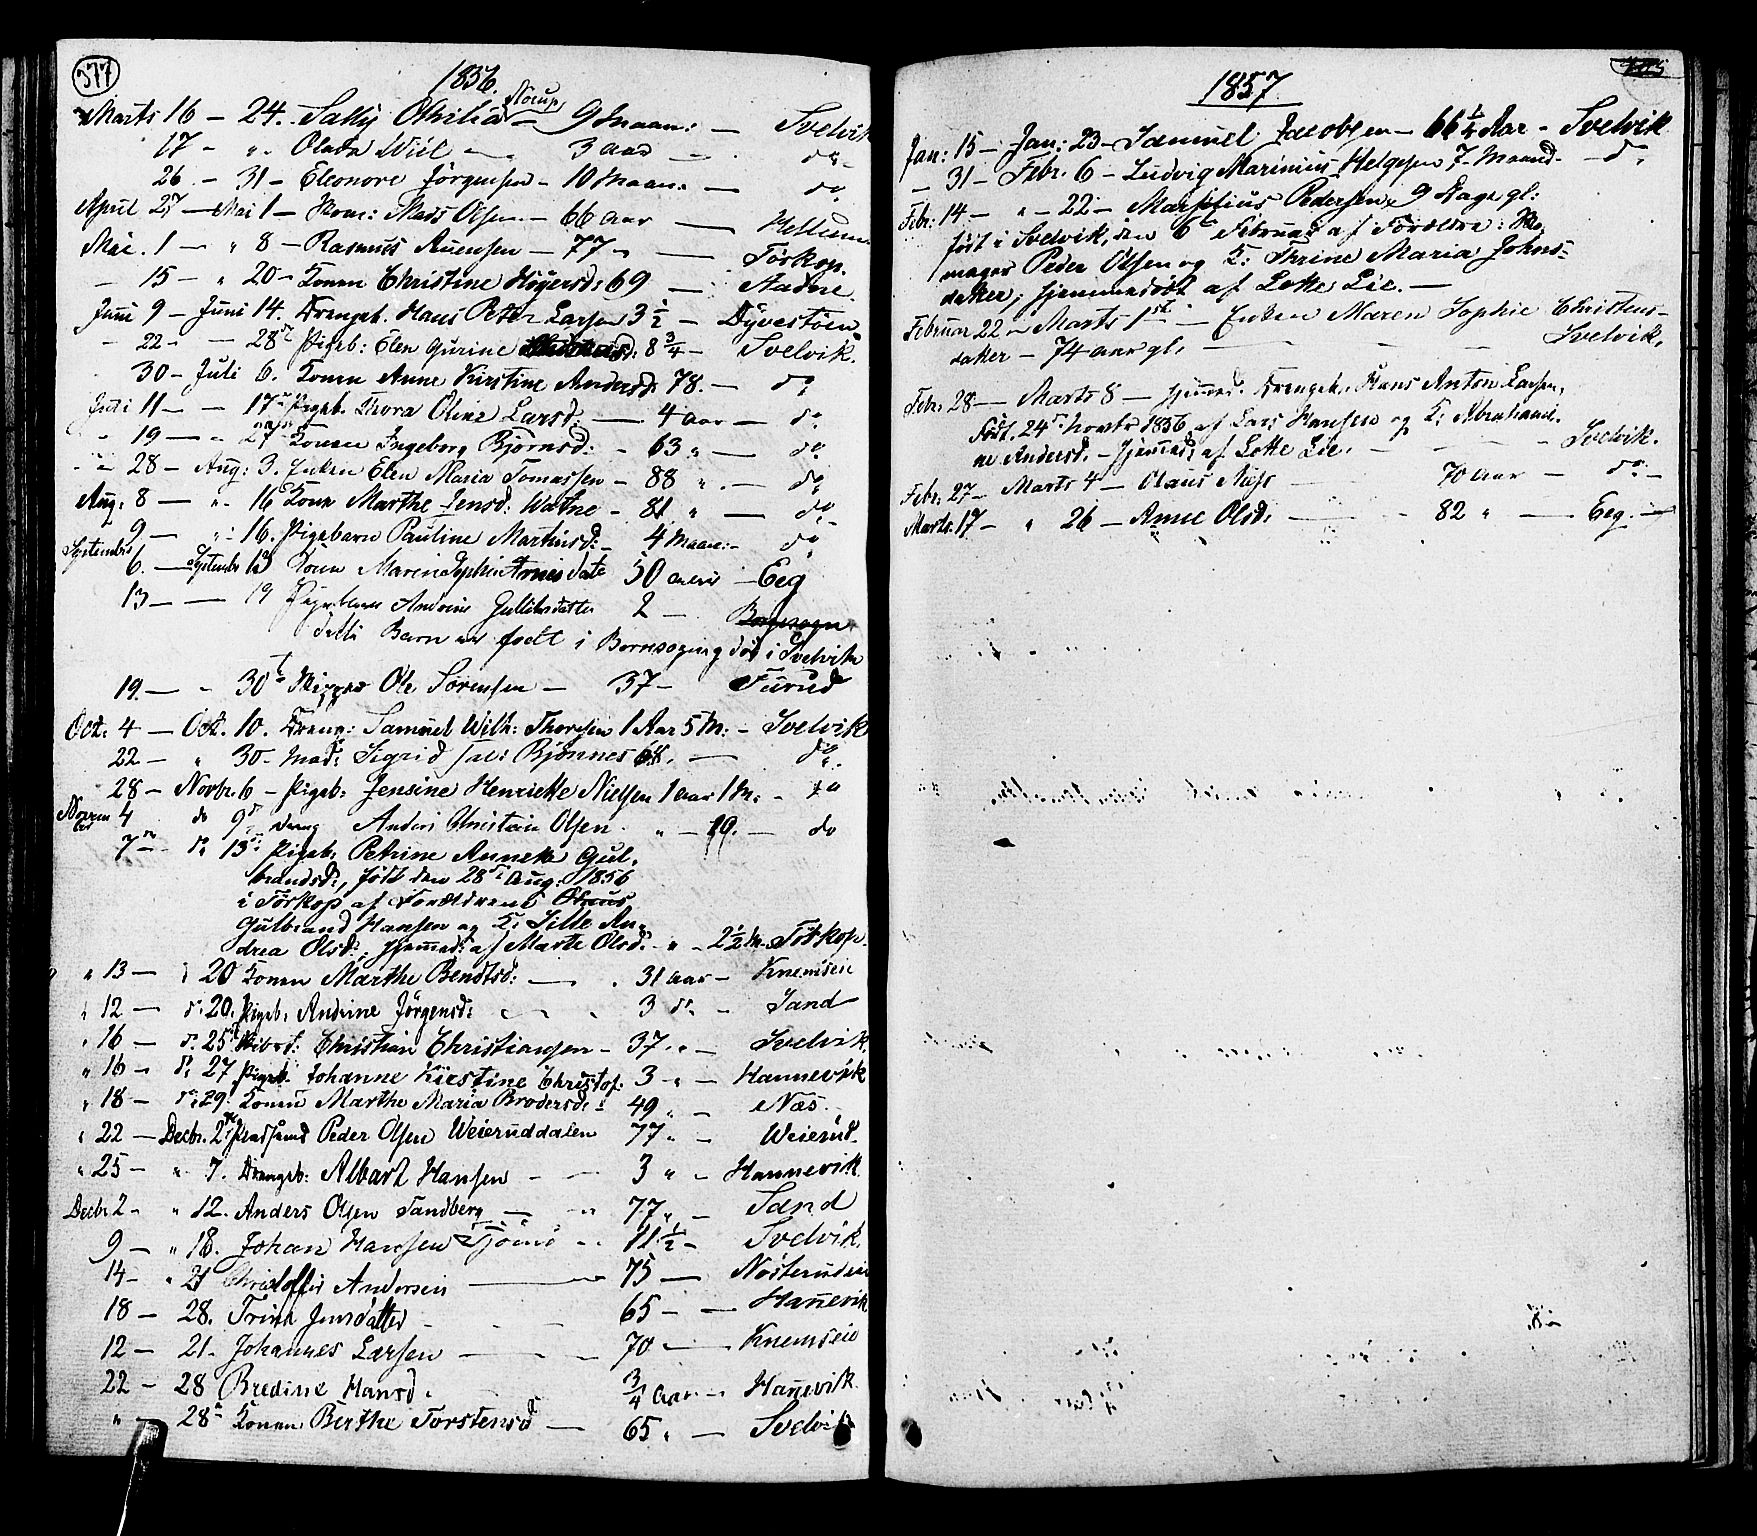 377
1856.
Marts 16 — 24. Sally Othilia Norup — 9 Maan: — Svelvik
17 — " — Olada Wiel — 3 aar — do
26 — 31 — Eleonore Jörgensen — 10 Maan: — do
April 27 — Mai 1 — Kone: Mads Olsen — 66 aar — Hellum
Mai 1 — " 8 — Rasmus Auensen — 77 — Torskop.
— 15 — " 20 — Konen Christine Högersd: 69 — Aadne.
Juni 9 — Juni 14. Drengeb. Hans Peter Larsen 3 1/2 — Dyvestöen
— 22 — — 28de Pigeb: Elen Gurine 8 3/4 — Svelvik.
30 — Juli 6. Konen Anne Kirstine Andersd: 78. — do
Juli 11 — — 17de Pigeb. Thora Oline Larsd. — 4 aar — do
" 19 — — 27de Konen Ingeborg Björnsd: — 63 " — do
" 28 — Aug: 3. Enken Elen Maria Tomassen — 88 " — do
Aug: 8 — " 16 Kone Marthe Jensd: Watne — 81 " — do
9 — " 16. Pigebarn Pauline Martinsd: — 4 Maan: — do
Septembr 6. — Septembr 13 Konen Maren Sophie Arnesdatt 50 aar — Eeg
13 — — 19 Pigebarn Andrine Gulliksdatter 2 — Bornesogn
dette Barn er fodt i Bornsogn og död i Svelvik
19. — " 30te Skipper Ole Sörensen — 37 — Turud
Oct: 4 — Oct. 10. Dreng: Samuel Wilh: Thorsen 1 Aar 5 M: — Svelvik
22 — " 30 — Mad: Sigrid sal: Bjönnes 68. — do
28 — Novbr. 6 — Pigeb: Jensine Henriette Nielsen 1 aar 1 M: — do
Novem ber 4 do 9de Dreng Anders Christian Olsen " — 19. — do
7de — do 13de Pigeb. Petrine Annette Gul-
brandsd:, född den 28de Aug: 1856
i Torskop af Forældrene
Gulbrand Hansen og K: Sille An-
drea Olsd:, hjemmed: af Marte Olsd: " — 2 1/2 M. Torskop.
" 13 — " 20 Konen Marthe Bendtsd: — 31 aar — Knemseie
" 12 — do 20. Pigeb. Andrine Jörgensd: 3 do — Sand
" 16 — do 25de Christian Christiansen — 37 " — Svelvik.
" 16 — do 27 Pigeb. Johanne Kirstine Christof: 3 " — Hannevik
" 18 — do 29. Konen Marthe Maria Brodersd: 49 " — Næs.
" 22 — Decbr. 2de Peder Olsen Weieruddalen 77 " — Weierud.
" 25 — " 7. Drengeb: Albart Hansen — 3 " — Hannevik
Decbr 2 — " 12. Anders Olsen Sandberg — 77 " — Sand
9 — " 18. Johan Hansen Tjöme — 11 1/2 — Svelvik.
14 — " 21 Christoffer Andersen — 75 — Nösterudeie
18 — 28. Trine Jensdatter 65 — — Hannevik
12 — 21. Johannes Larsen — 70 — Knemseie
22 — 28 Bredine Hansd. 3/4 aar — Hannevik
" 28de Konen Berthe Torstensd — 65 " — Svelvik
1857
Jan: 15 — Jan: 23 — Samuel Jacobsen — 66 1/4 Aar — Svelvik
— 31 — Febr. 6 — Ludvig Marinius Helgesen 7 Maand. — do
Febr: 14 — " — 22 — Pedersen, 9 Dage gl:
född i Svelvik, den 6te Februar af Forældre:
mager Peder Olsen og K: Thrine Maria Johns-
datter; hjemmedöbt af Lotte Lie. —
Februar 22 — Marts 1st — Enken Maren Sophie Christens-
datter — 74 aar gl. — Svelvik.
Febr: 28 — Marts 8 — hjemmed. Drengeb. Hans Anton Larsen,
Född. 24de Novbr 1856 af Lars Hansen og K: Abrahami-
ne Andersd. — hjemmed, af Lotte Lie. — Svelvik.
Febr: 27 — Marts 4 — Olaus — 70 aar — do
Marts: 17 — " 26 — Anne Olsd: — 82 " — Eeg.